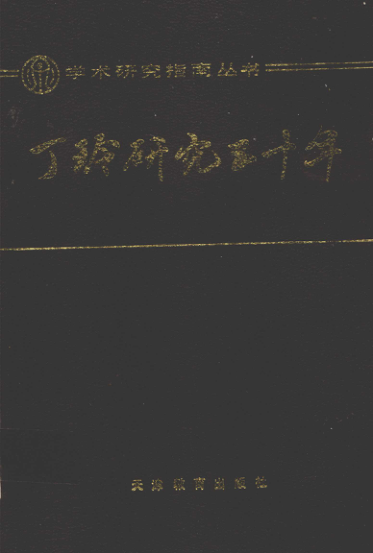 学术研究指南丛书
丁玲研究五十年
天津教育出版社